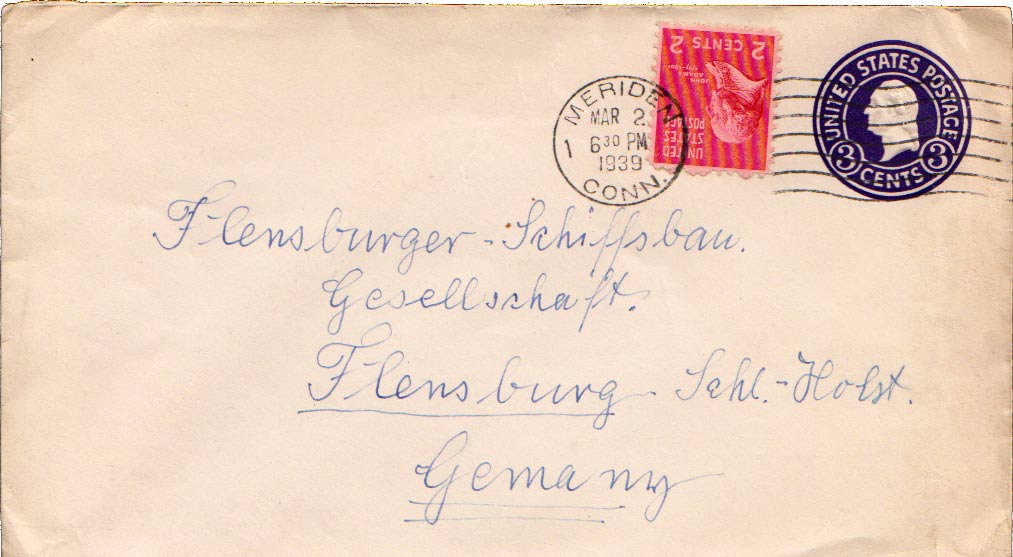 MERIDEN
MAR 2
1 6 30 PM
1939
CONN.
2 CENTS 2
JOHN
ADAMS
UNITED
STATES
POSTAGE
UNITED STATES POSTAGE
3 CENTS 3
Flensburger-Schiffsbau.
Gesellschaft.
Flensburg-Schl.-Holst.
Gemany